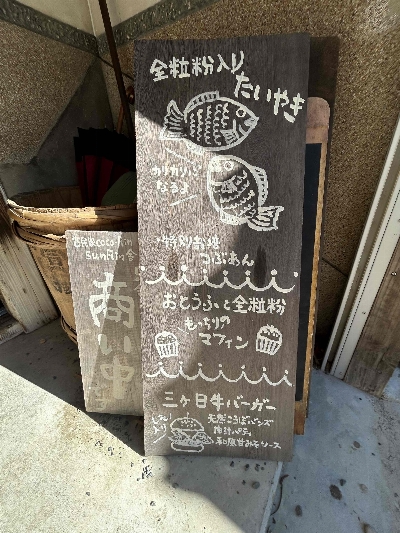 全粒粉入り
たいやき
カリカリに
なるよ
特別お塩
つぶあん
おとうふと全粒粉
もっちりの
マフィン
三ヶ日牛バーガー
天然こうぼバンズ
和風甘みそソース
商い中